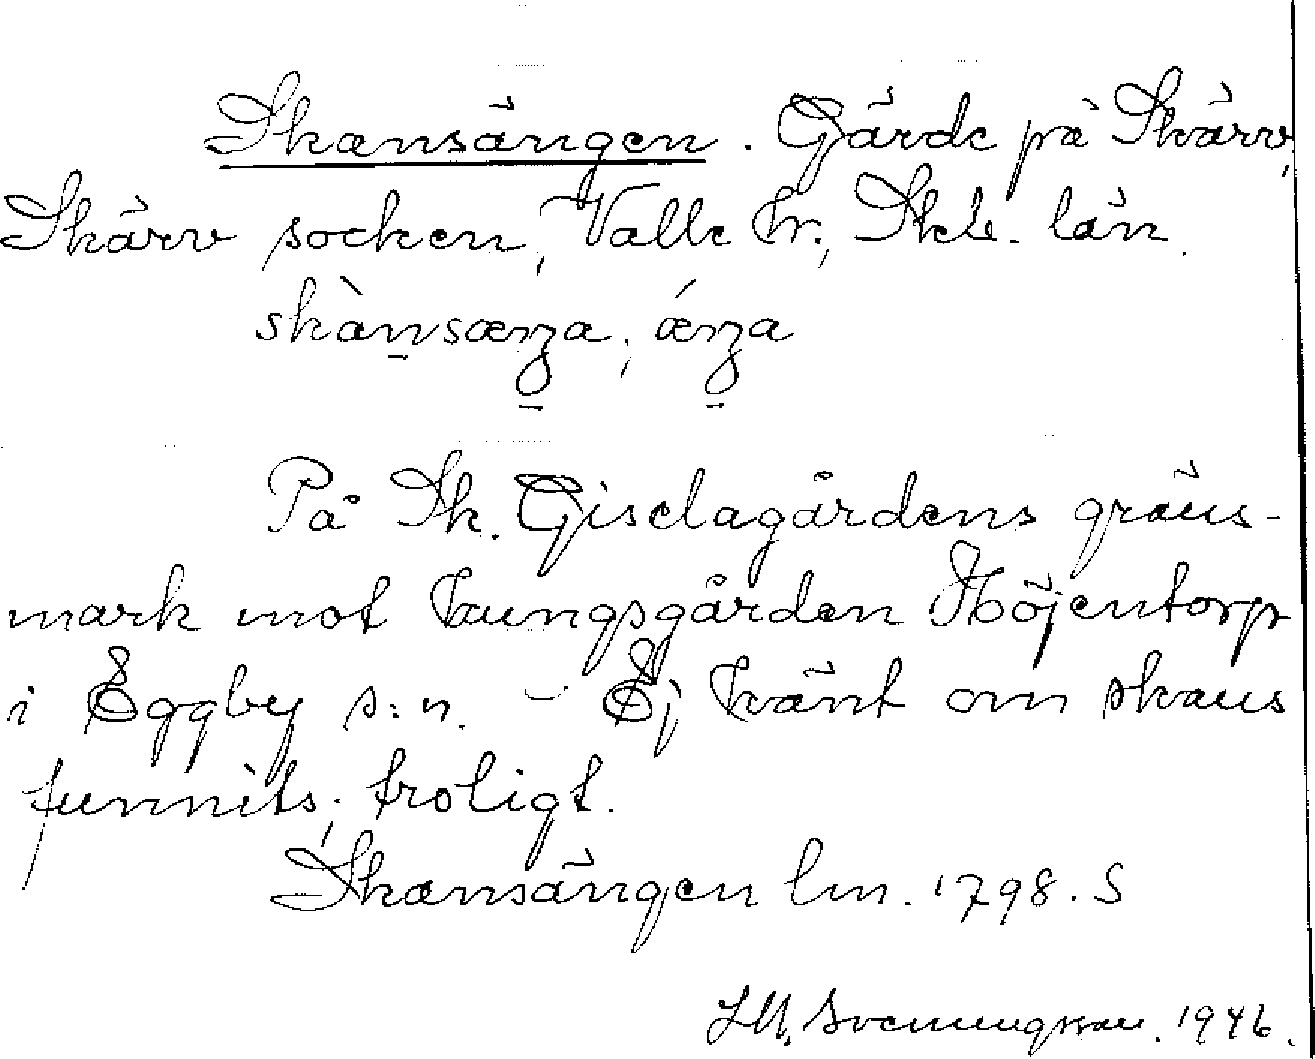 Skansängen. Gärde på Skärv,
Skärv socken, Valle hr., Skb. län.
skànsæŋa, ǽŋa
På Sk. Giselagårdens gräns-
mark mot kungsgården Höjentorp
i Eggby s:n. - Ej känt om skans
funnits, troligt.
Skansängen lm. 1798. S
Svenungsson. 1946.